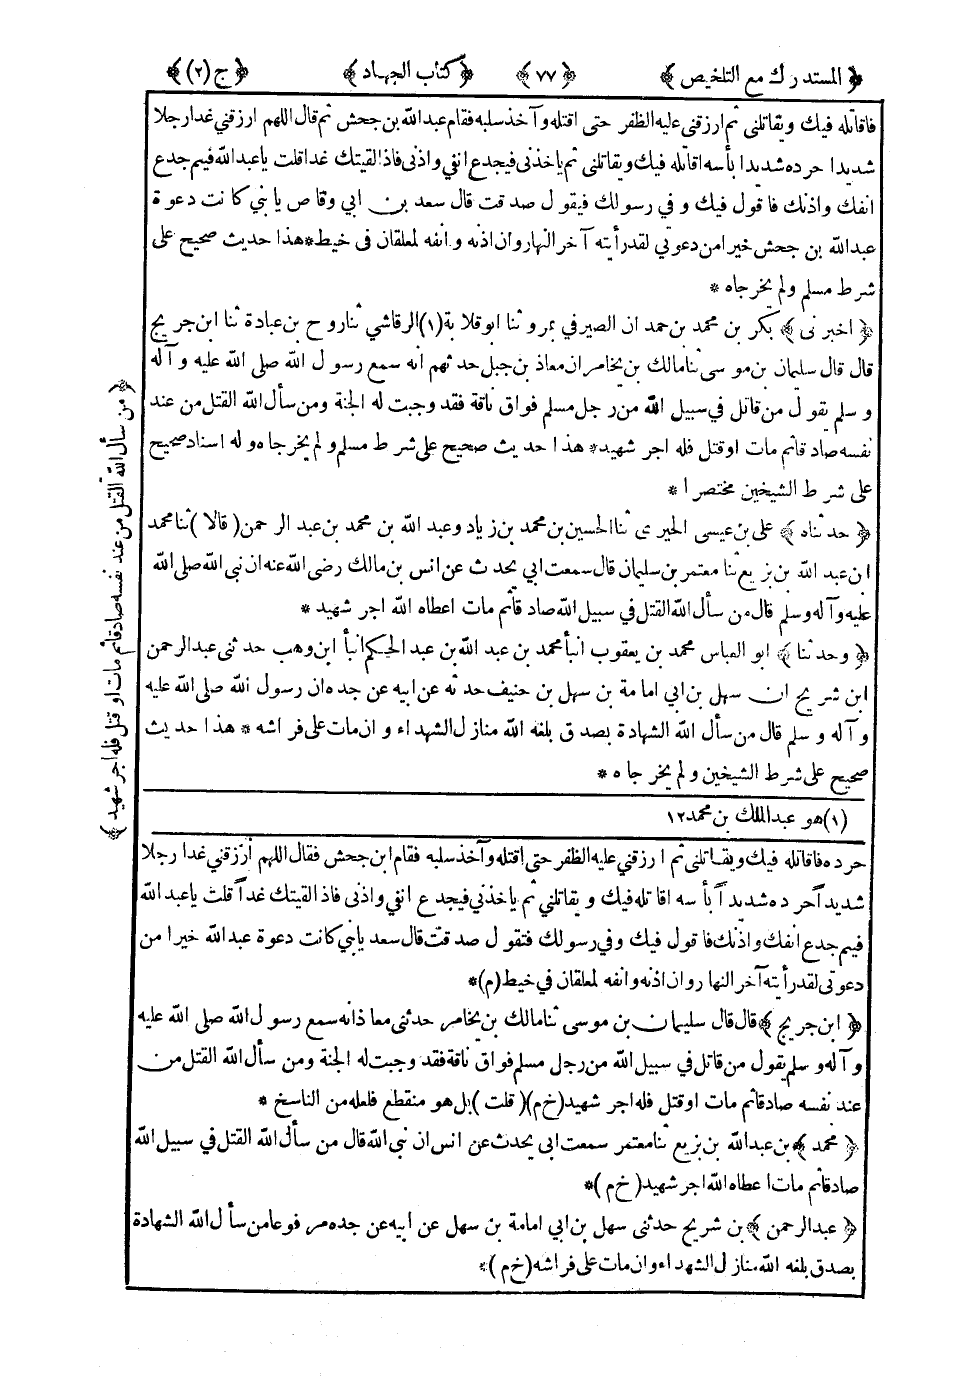 ﴿ المستدرك مع التلخيص ﴾ ﴿ ٧٧ ﴾ ﴿ كتاب الجهاد ﴾ ﴿ ج (٢) ﴾
فاقاتله فيك ويقاتلنى ثم ارزقنى عليه الظفر حتى اقتله وآخذ سلبه فقام عبد الله بن جحش ثم قال اللهم ارزقني غدا رجلا
شديدا حرده شديدا بأسه اقاتله فيك ويقاتلنى ثم ياخذنى فيجدع انفي واذنى فاذا لقيتك غدا قلت يا عبد الله فيم جدع
انفك واذنك فاقول فيك وفي رسولك فيقول صدقت قال سعد بن ابي وقاص يا بني كانت دعوة
عبد الله بن جحش خيرا من دعوتي لقد رأيته آخر النهار وان اذنه وانفه لمعلقان فى خيط * هذا حديث صحيح على
شرط مسلم ولم يخرجاه *
﴿ اخبرنى ﴾ بكر بن محمد بن حمدان الصيرفي بمرو ثنا ابو قلابة (١) الرقاشي ثنا روح بن عبادة ثنا ابن جريج
قال قال سليمان بن موسى ثنا مالك بن يخامر ان معاذ بن جبل حدثهم انه سمع رسول الله صلى الله عليه وآله
وسلم يقول من قاتل في سبيل الله من رجل مسلم فواق ناقة فقد وجبت له الجنة ومن سأل الله القتل من عند
نفسه صادقا ثم مات او قتل فله اجر شهيد * هذا حديث صحيح على شرط مسلم ولم يخرجاه وله اسناد صحيح
على شرط الشيخين مختصرا *
﴿ حدثناه ﴾ على بن عيسى الحيرى ثنا الحسين بن محمد بن زياد وعبد الله بن محمد بن عبد الرحمن ( قالا ) ثنا محمد
ابن عبد الله بن بزيع ثنا معتمر بن سليمان قال سمعت ابي يحدث عن انس بن مالك رضى الله عنه ان نبى الله صلى الله
عليه وآله وسلم قال من سأل الله القتل في سبيل الله صادقا ثم مات اعطاه الله اجر شهيد *
﴿ وحدثنا ﴾ ابو العباس محمد بن يعقوب انبأ محمد بن عبد الله بن عبد الحكم انبأ ابن وهب حدثنى عبد الرحمن
ابن شريح ان سهل بن ابي امامة بن سهل بن حنيف حدثه عن ابيه عن جده ان رسول الله صلى الله عليه
وآله وسلم قال من سأل الله الشهادة بصدق بلغه الله منازل الشهداء وان مات على فراشه * هذا حديث
صحيح على شرط الشيخين ولم يخرجاه *
﴿ من سأل الله القتل من عند نفسه صادقا ثم مات او قتل فله اجر شهيد ﴾
(١) هو عبد الملك بن محمد ١٢
حرده فاقاتله فيك ويقاتلنى ثم ارزقني عليه الظفر حتى اقتله وآخذ سلبه فقام ابن جحش فقال اللهم ارزقني غدا رجلا
شديداً حرده شديداً بأسه اقاتله فيك ويقاتلني ثم ياخذني فيجدع انفي واذنى فاذا لقيتك غداً قلت يا عبد الله
فيم جدع انفك واذنك فاقول فيك وفي رسولك فتقول صدقت قال سعد يا بني كانت دعوة عبد الله خيرا من
دعوتى لقد رأيته آخر النهار وان اذنه وانفه لمعلقان في خيط (م) *
﴿ ابن جريج ﴾ قال قال سليمان بن موسى ثنا مالك بن يخامر حدثنى معاذ انه سمع رسول الله صلى الله عليه
وآله وسلم يقول من قاتل في سبيل الله من رجل مسلم فواق ناقة فقد وجبت له الجنة ومن سأل الله القتل من
عند نفسه صادقا ثم مات او قتل فله اجر شهيد (خ م) ( قلت ) بل هو منقطع فلعله من الناسخ *
﴿ محمد ﴾ بن عبد الله بن بزيع ثنا معتمر سمعت ابى يحدث عن انس ان نبى الله قال من سأل الله القتل في سبيل الله
صادقا ثم مات اعطاه الله اجر شهيد ( خ م ) *
﴿ عبد الرحمن ﴾ بن شريح حدثنى سهل بن ابي امامة بن سهل عن ابيه عن جده مرفوعا من سأل الله الشهادة
بصدق بلغه الله منازل الشهداء وان مات على فراشه (خ م) *